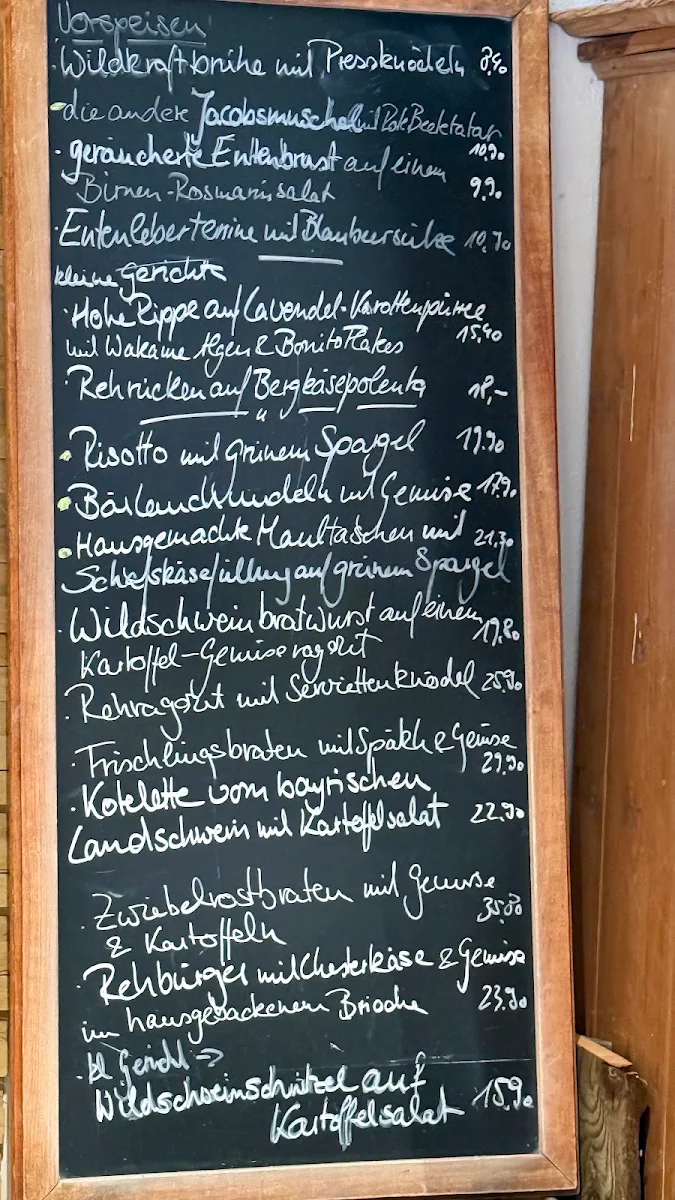 Vorspeisen
· Wildkraftbrühe mit Pressknödeln 8,40
- die andere Jacobsmuschel mit Rote Beetetatar 10,90
· geräucherte Entenbrust auf einem
Birnen-Rosmarinsalat 9,90
· Entenleberterrine mit Blaubeersülze 10,70
kleine Gerichte
· Hohe Rippe auf Lavendel-Karottenpüree
mit Wakame Algen & Bonito Flakes 15,40
· Rehrücken auf Bergkäsepolenta 18,-
· Risotto mit grünem Spargel 19,90
· Bärlauchnudeln mit Gemüse 17,90
· Hausgemachte Maultaschen mit 21,30
Schafskäsefüllung auf grünem Spargel
· Wildschweinbratwurst auf einem
Kartoffel-Gemüseragout 19,80
· Rehragout mit Serviettenknödel 25,90
· Frischlingsbraten mit Spätzle & Gemüse
29,90
· Kotelette vom bayrischen
Landschwein mit Kartoffelsalat 22,90
· Zwiebelrostbraten mit Gemüse
& Kartoffeln 35,80
· Rehburger mit Chesterkäse & Gemüse
im hausgebackenem Brioche 23,90
· kl Gericht →
Wildschweinschnitzel auf
Kartoffelsalat 15,90